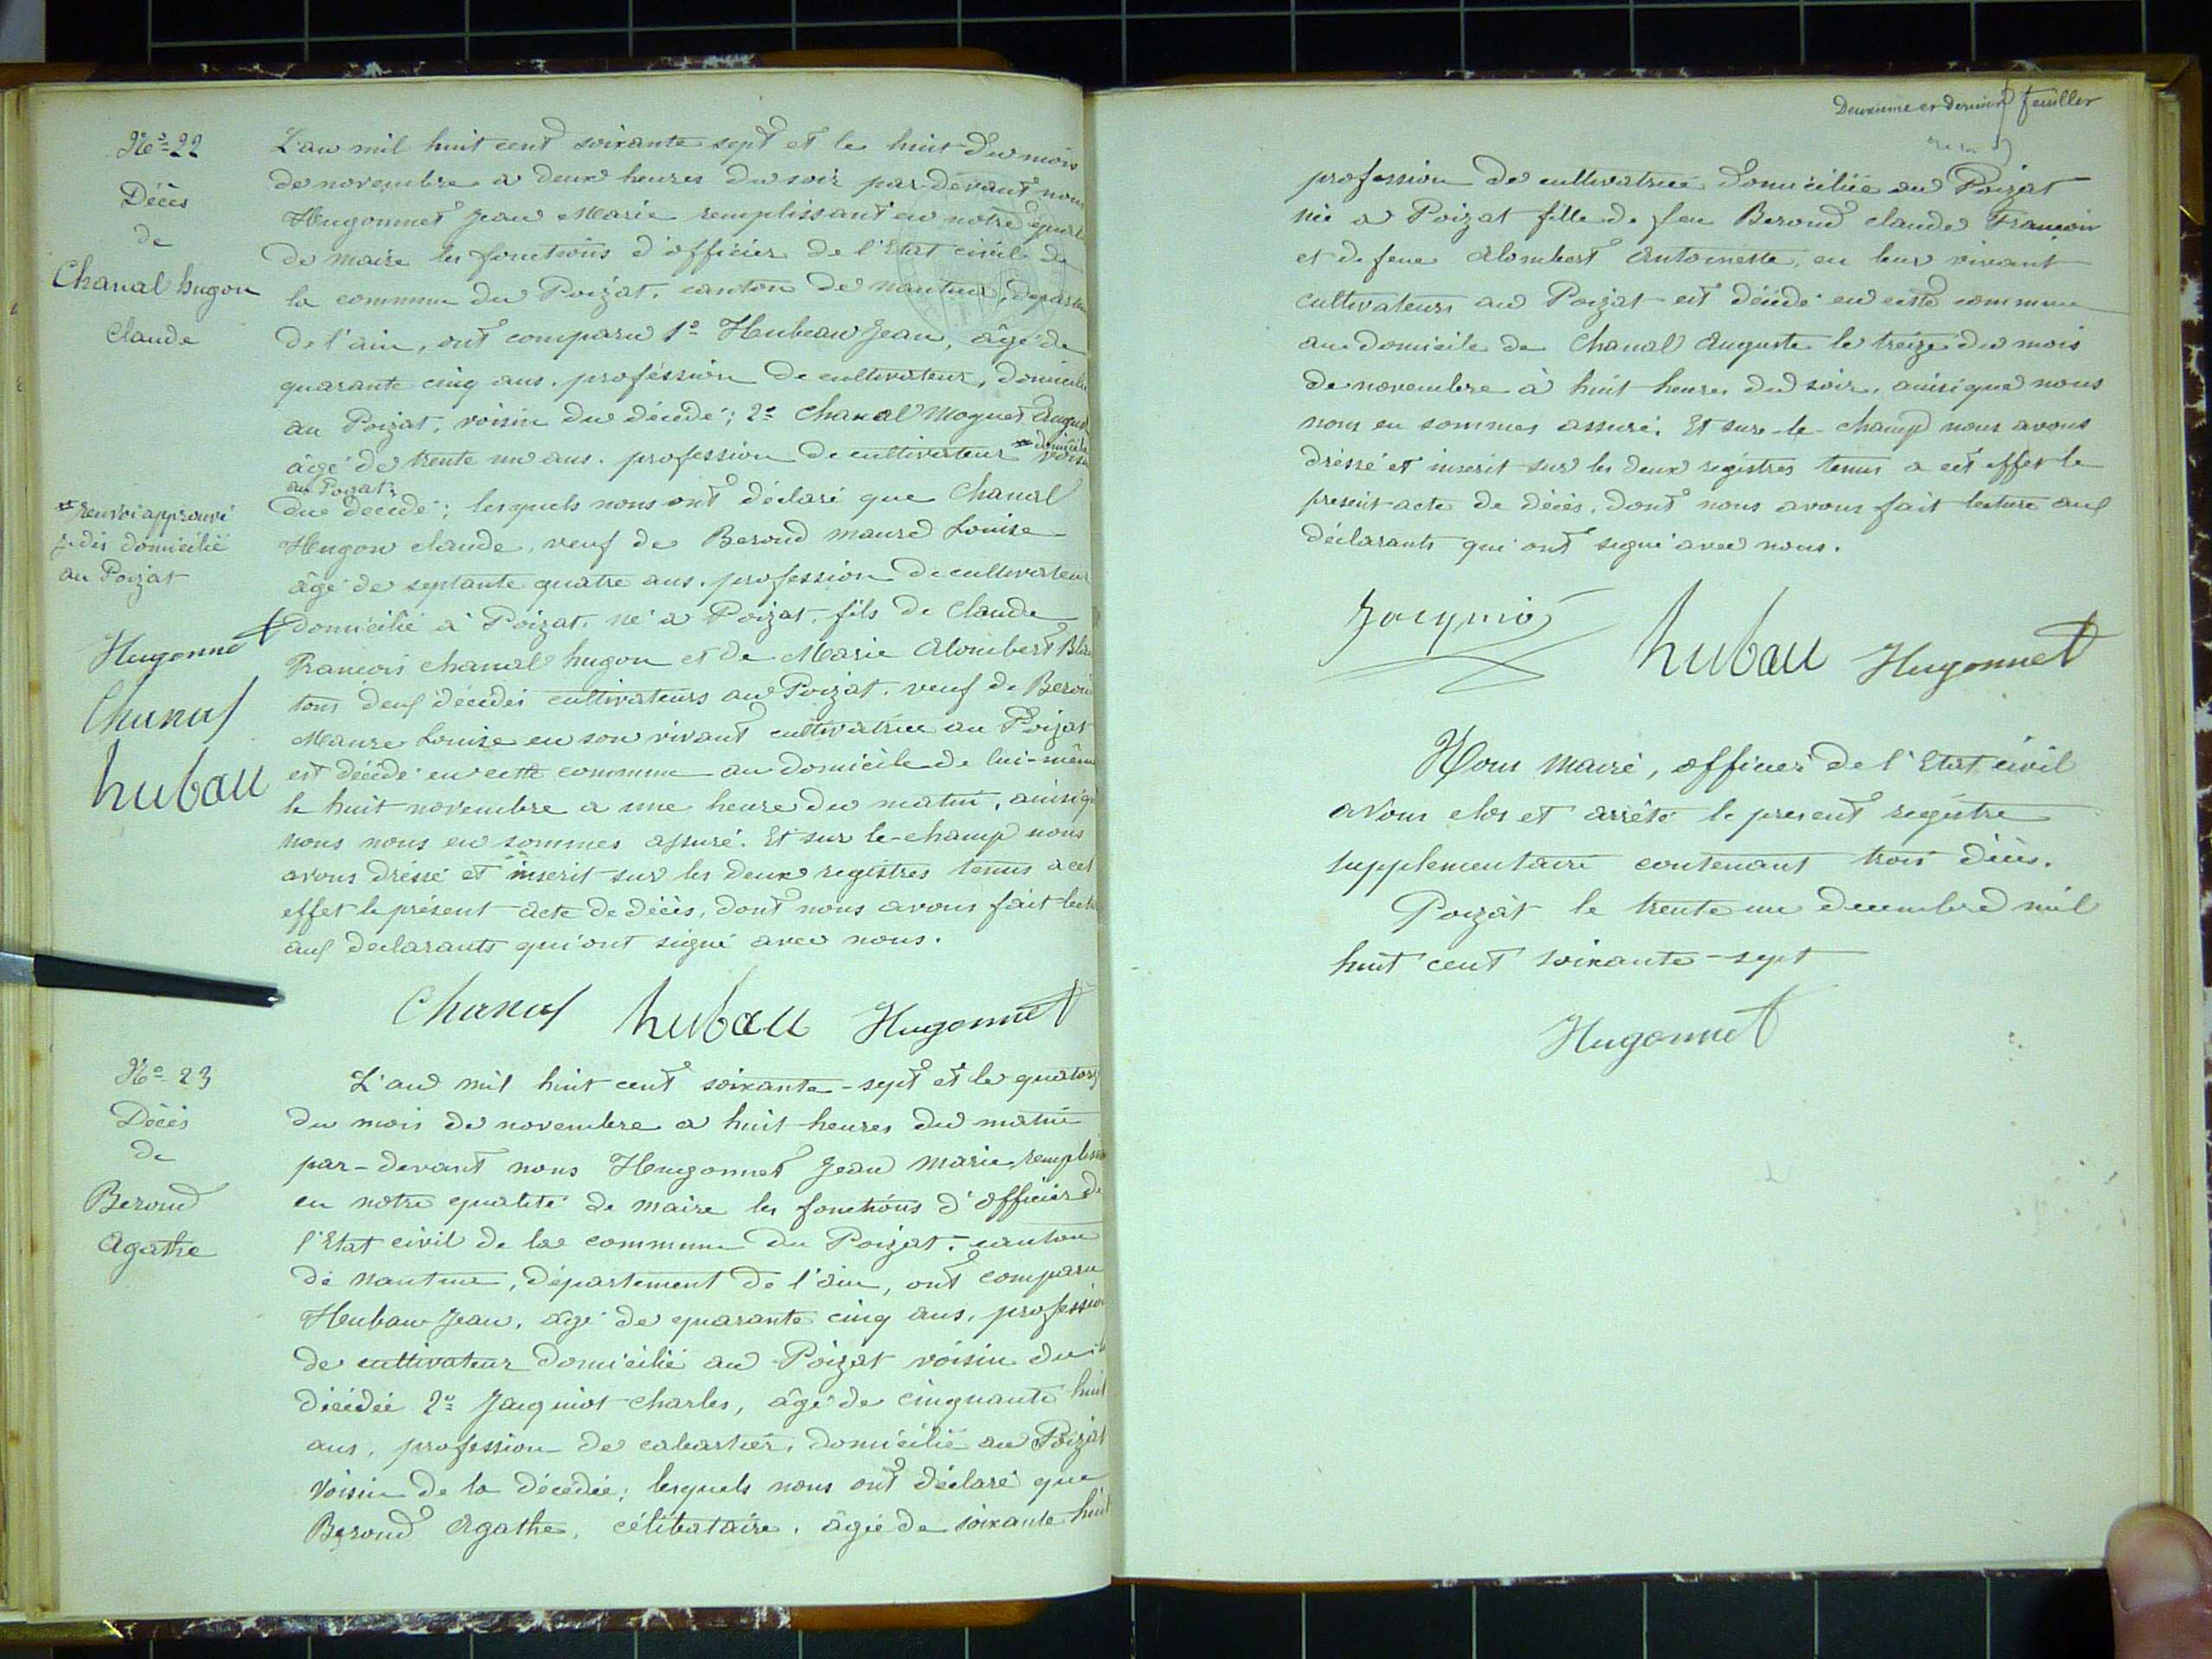 Nº=22
Décès
de
Chanal hugon
Claude
L'an mil huit cent soixante sept et le huit du mois
de novembre a deux heures du soir par-devant nous
Hugonnet Jean Marie remplissant en notre
de maire les fonctions d'officier de l'Etat civil de
la commune du Poizat, canton de nantua,
de l'ain, ont comparu 1º Hubeau Jean, âgé de
quarante cinq ans. profession de cultivateur,
au Poizat, voisin du décédé; 2º Chanal Moguet
âgé de trente un ans. profession de cultivateur
au Poizat,
du décédé; lesquels nous ont déclaré que Chanal
Hugon Claude, veuf de Beroud Maure Louise
âgé de septante quatre ans. profession de cultivateur
domicilié à Poizat, né a Poizat, fils de Claude
François Chanal hugon et de Marie Alombert
tous deux décédés cultivateurs au Poizat. veuf de Beroud
Maure Louise en son vivant cultivatrice au Poizat
est décédé en cette commune au domicile de lui-même
le huit novembre a une heure du matin, ainsi que
nous nous en sommes assuré. Et sur le-champ nous
avons dressé et inscrit sur les deux registres tenus a cet
effet le présent acte de décès, dont nous avons fait
aux declarants qui ont signé avec nous.
renvoi approuvé
domicilié
au Poizat
Hugonnet
Chanal
hubau
Chanal hubau Hugonnet
Nº=23
Décès
de
Beroud
Agathe
L'an mil huit cent soixante-sept et le quatorze
du mois de novembre a huit heures du matin
par-devant nous Hugonnet Jean Marie,
en notre qualité de maire les fonctions d'officier de
l'Etat civil de la commune du Poizat, canton
de nantua, département de l'ain, ont comparu
Hubau Jean, âgé de quarante cinq ans, profession
de cultivateur domicilié au Poizat voisin
décédée 2º Jacquiot Charles, âgé de cinquante huit
ans, profession de cabartier, domicilié au Poizat
voisin de la décédée; lesquels nous ont déclaré que
Beroud Agathe, célibataire, âgée de soixante huit
Deuxieme et dernier feuillet
profession de cultivatrice domiciliée au Poizat
née a Poizat fille de feu Beroud Claude François
et de feue Alombert Antoinette, en leur vivant
cultivateurs au Poizat est décédé en cette commune
au domicile de Chanal Auguste le treize du mois
de novembre à huit heures du soir, ainsi que nous
nous en sommes assuré. Et sur-le-champ nous avons
dréssé et inscrit sur les deux registres tenus a cet effet le
present acte de décès, dont nous avons fait lecture aux
déclarants qui ont signé avec nous.
Jacquiot hubau Hugonnet
Nous Maire, officier de l'Etat civil
avons clos et arrêté le present registre
supplementaire contenant trois décès.
Poizat le trente un decembre mil
huit cent soixante-sept
Hugonnet